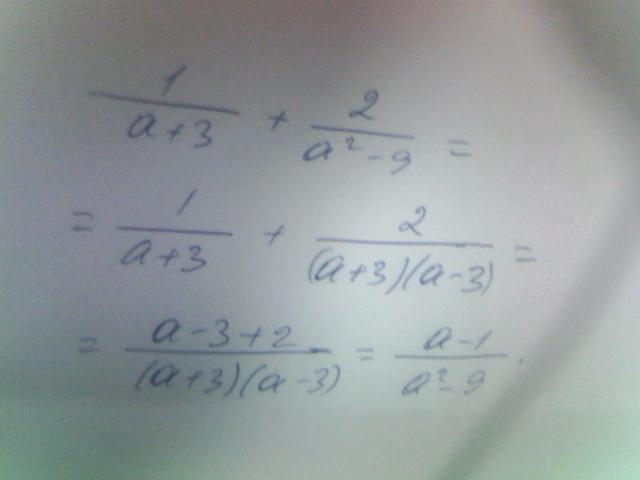 1/(a+3) + 2/(a²-9) =
= 1/(a+3) + 2/((a+3)(a-3)) =
= (a-3+2)/((a+3)(a-3)) = (a-1)/(a²-9).